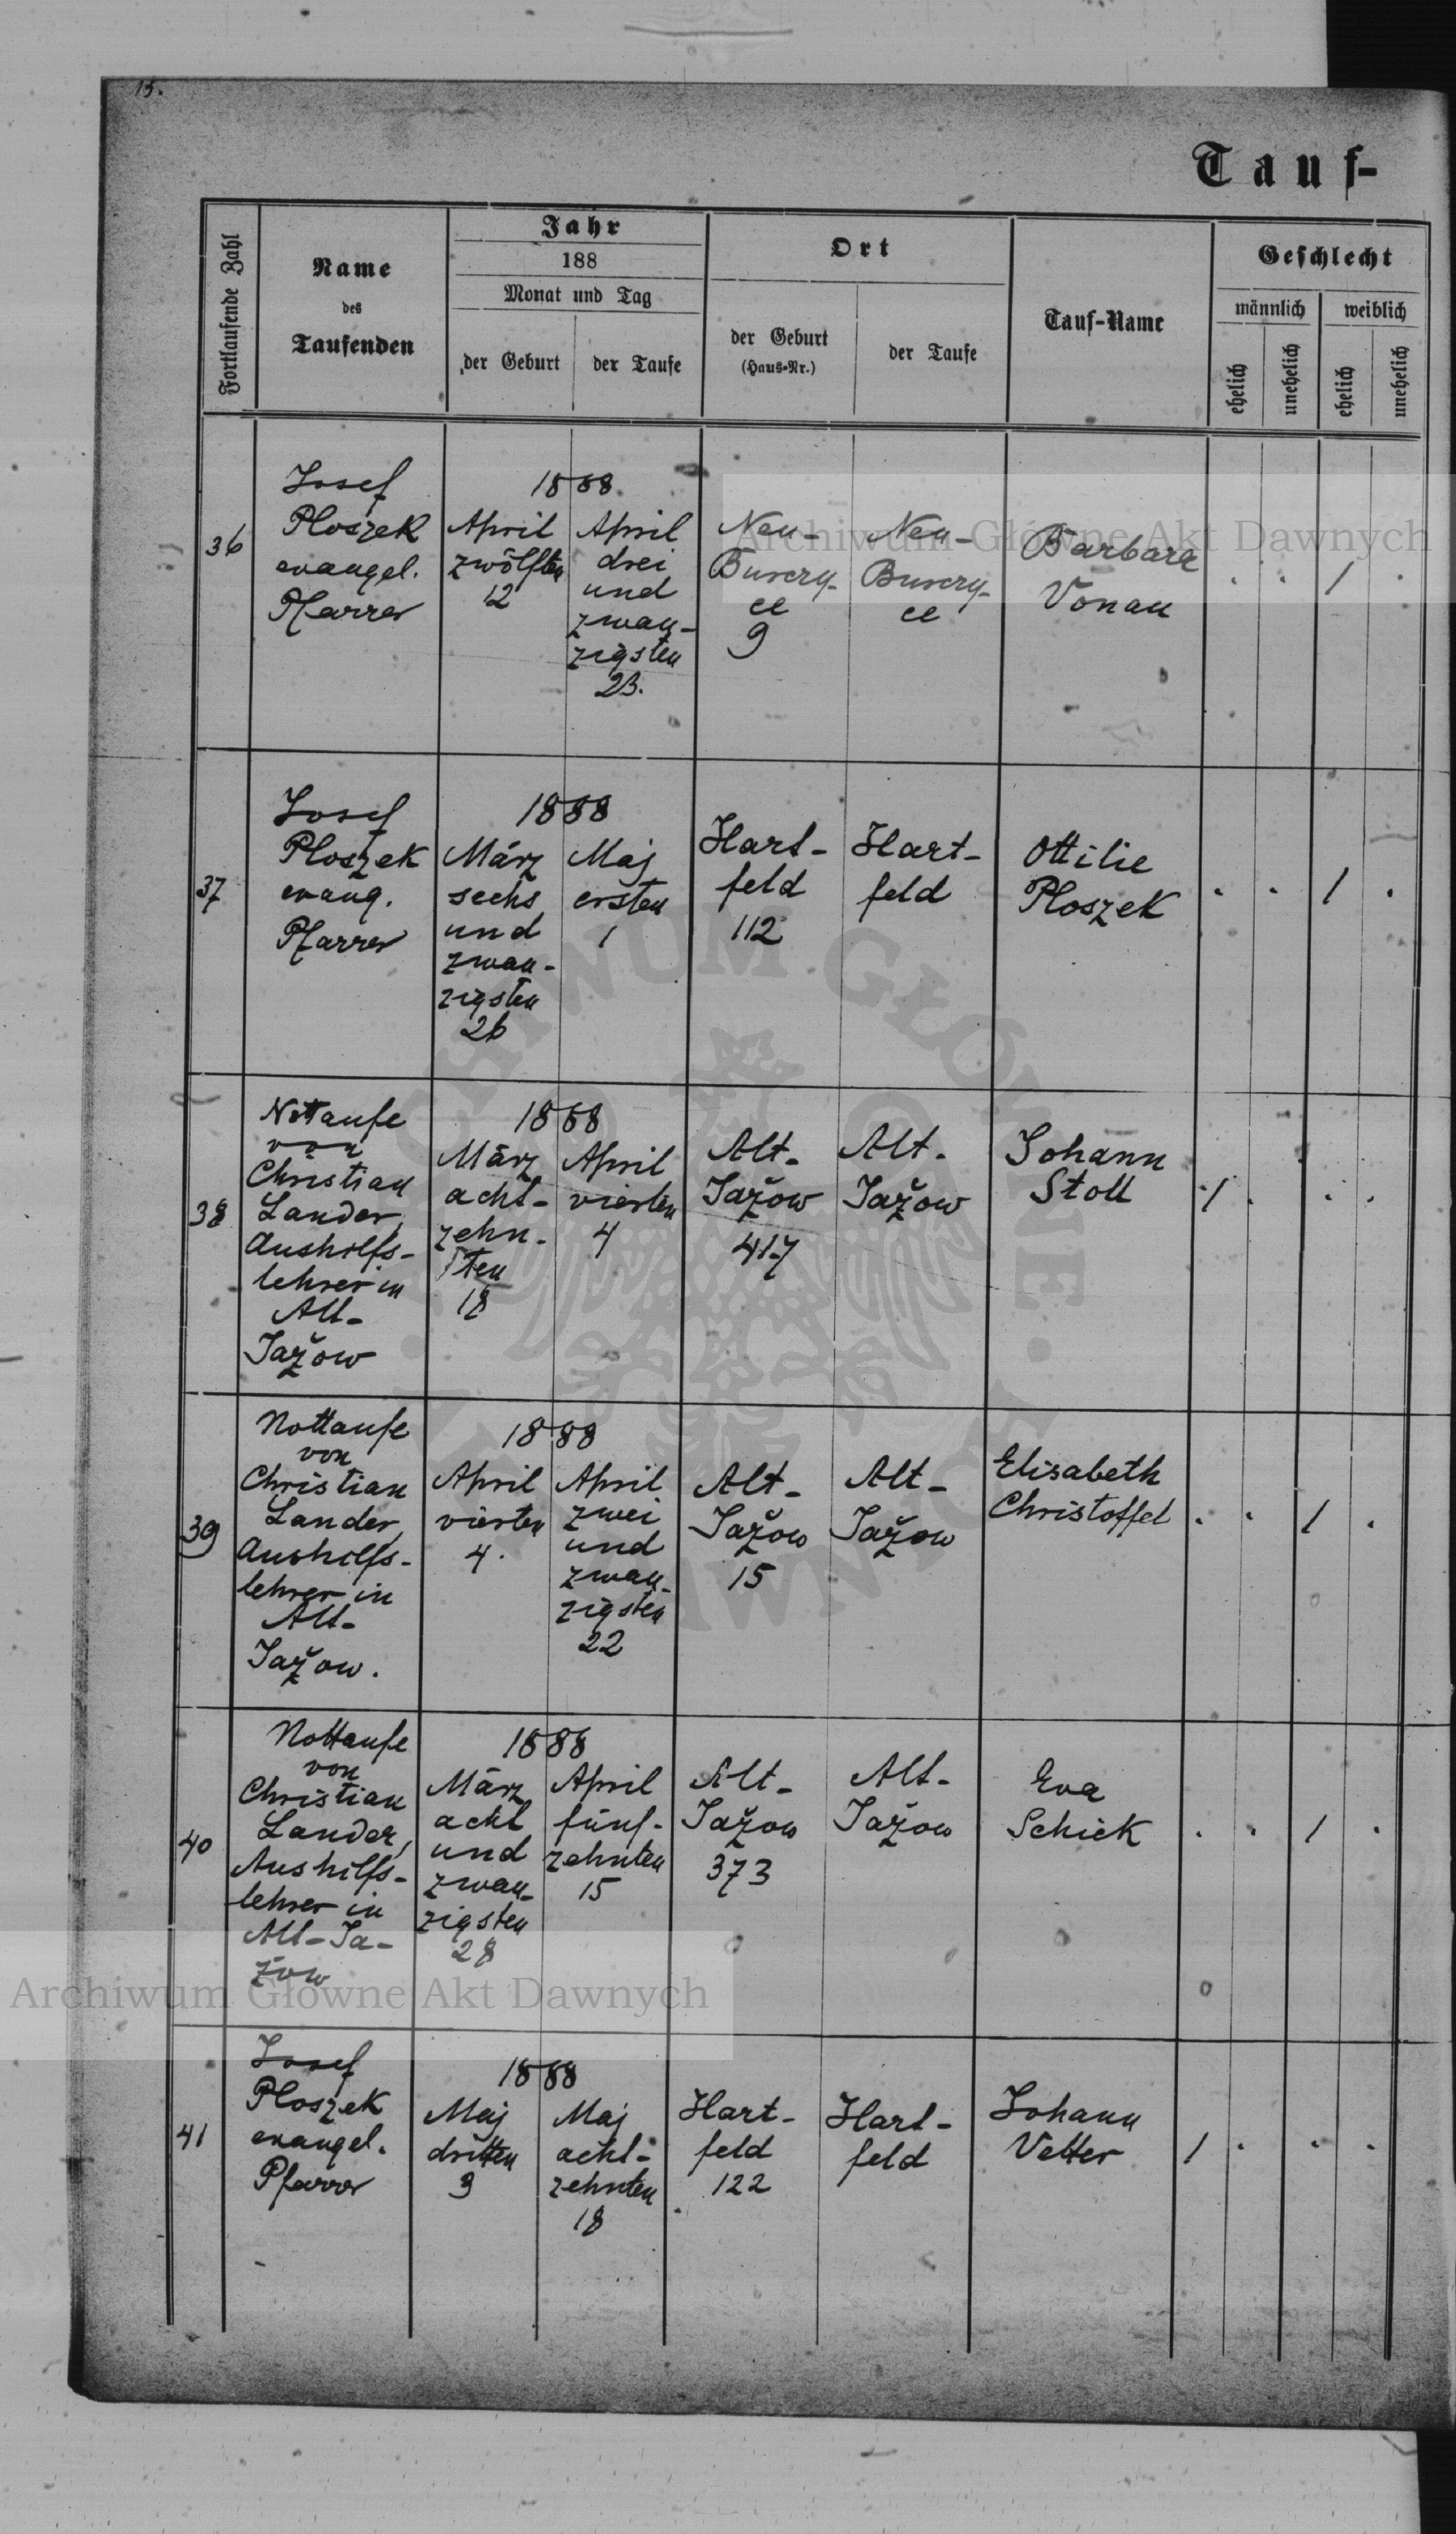 15.
Tauf-
Fortlaufende Zahl
Name
des
Taufenden
Jahr
188
Monat und Tag
der Geburt
der Taufe
Ort
der Geburt
(Haus-Nr.)
der Taufe
Tauf-Name
Geschlecht
männlich
weiblich
ehelich
unehelich
ehelich
unehelich
36
Josef
Ploszek
evangel.
Pfarrer
1888
April
zwölften
12
April
drei
und
zwan-
zigsten
23.
Neu-
9
Neu-
Barbara
Vonau
. . / .
37
Josef
Ploszek
evang.
Pfarrer
1888
März
sechs
und
zwan-
zigsten
26
Maj
ersten
1
Hart-
feld
112
Hart-
feld
Ottilie
Ploszek
. . / .
38
Nottaufe
von
Christian
Lander,
Aushilfs-
lehrer in
Alt-
Jažow
1888
März
acht-
zehn-
ten
18
April
vierten
4
Alt-
Jažow
417
Alt-
Jažow
Johann
Stoll
/ . . .
39
Nottaufe
von
Christian
Lander,
Aushilfs-
lehrer in
Alt-
Jažow.
1888
April
vierten
4.
April
zwei
und
zwan-
zigsten
22
Alt-
Jažow
15
Alt-
Jažow
Elisabeth
Christoffel
. . / .
40
Nottaufe
von
Christian
Lander,
Aushilfs-
lehrer in
Alt-Ja-
žow
1888
März
acht
und
zwan-
zigsten
28
April
fünf-
zehnten
15
Alt-
Jažow
373
Alt-
Jažow
Eva
Schick
. . / .
41
Josef
Ploszek
evangel.
Pfarrer
1888
Maj
dritten
3
Maj
acht-
zehnten
18
Hart-
feld
122
Hart-
feld
Johann
Vetter
/ . . .
Archiwum Główne Akt Dawnych
Archiwum Główne Akt Dawnych